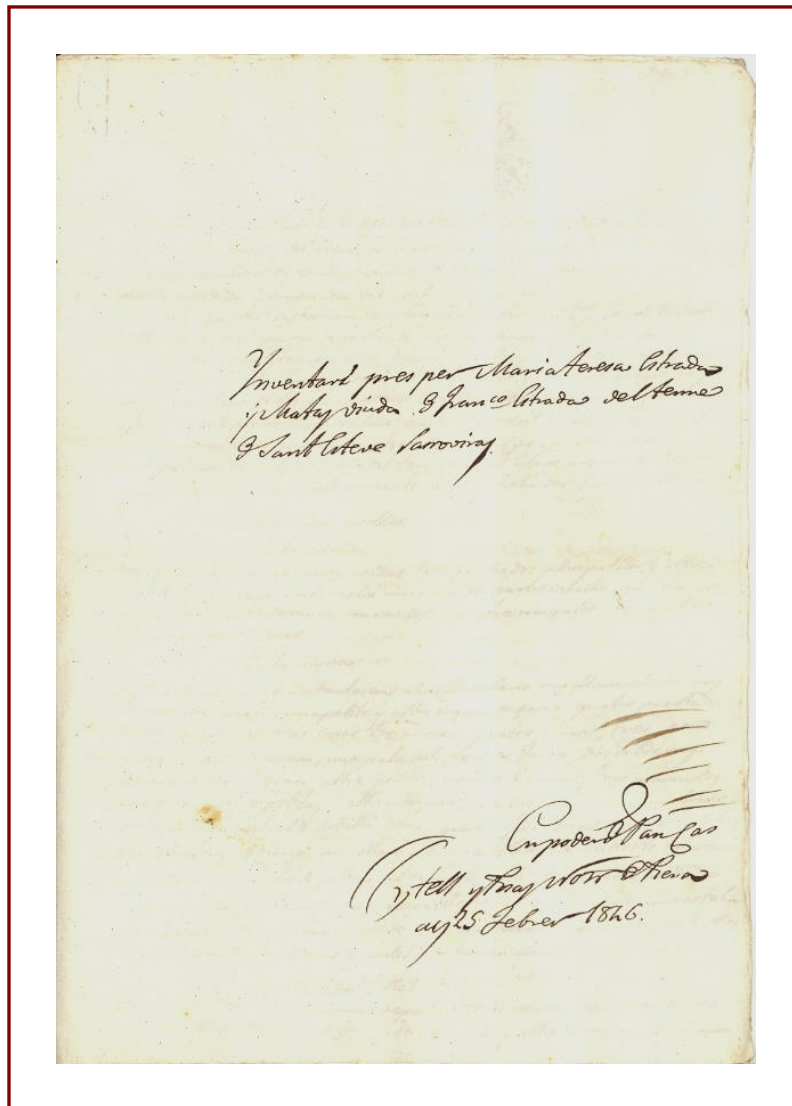 Inventari pres per Maria Teresa Estrada
y Matas viuda d Fran.co Estrada del terme
d Sant Esteve Sasroviras
En poder d Pau Cas
tell y not d Piera
als 25 Febrer 1846.